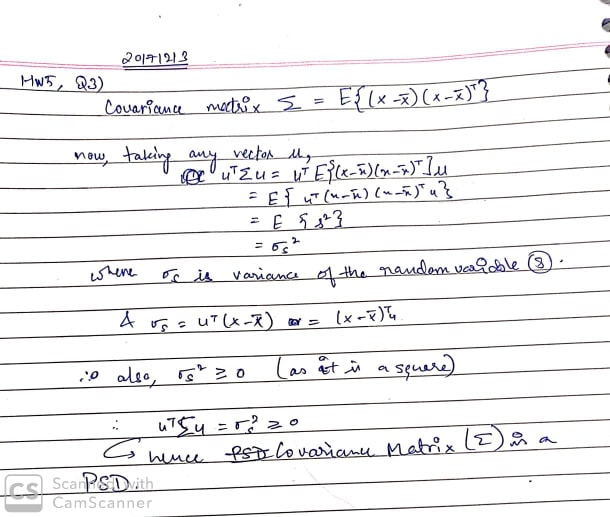 20171213
HW5, Q3)
Covariance matrix Σ = E{(x-x̄)(x-x̄)ᵀ}
now, taking any vector u,
uᵀΣu = uᵀE{(x-x̄)(x-x̄)ᵀ}u
= E{uᵀ(x-x̄)(x-x̄)ᵀu}
= E{s²}
= σₛ²
where σₛ is variance of the random variable (s).
& σₛ = uᵀ(x-x̄) = (x-x̄)ᵀu
∴ also, σₛ² ≥ 0 (as it is a square)
∴ uᵀΣu = σₛ² ≥ 0
↳ hence Covariance Matrix (Σ) is a
PSD.
CS Scanned with
CamScanner